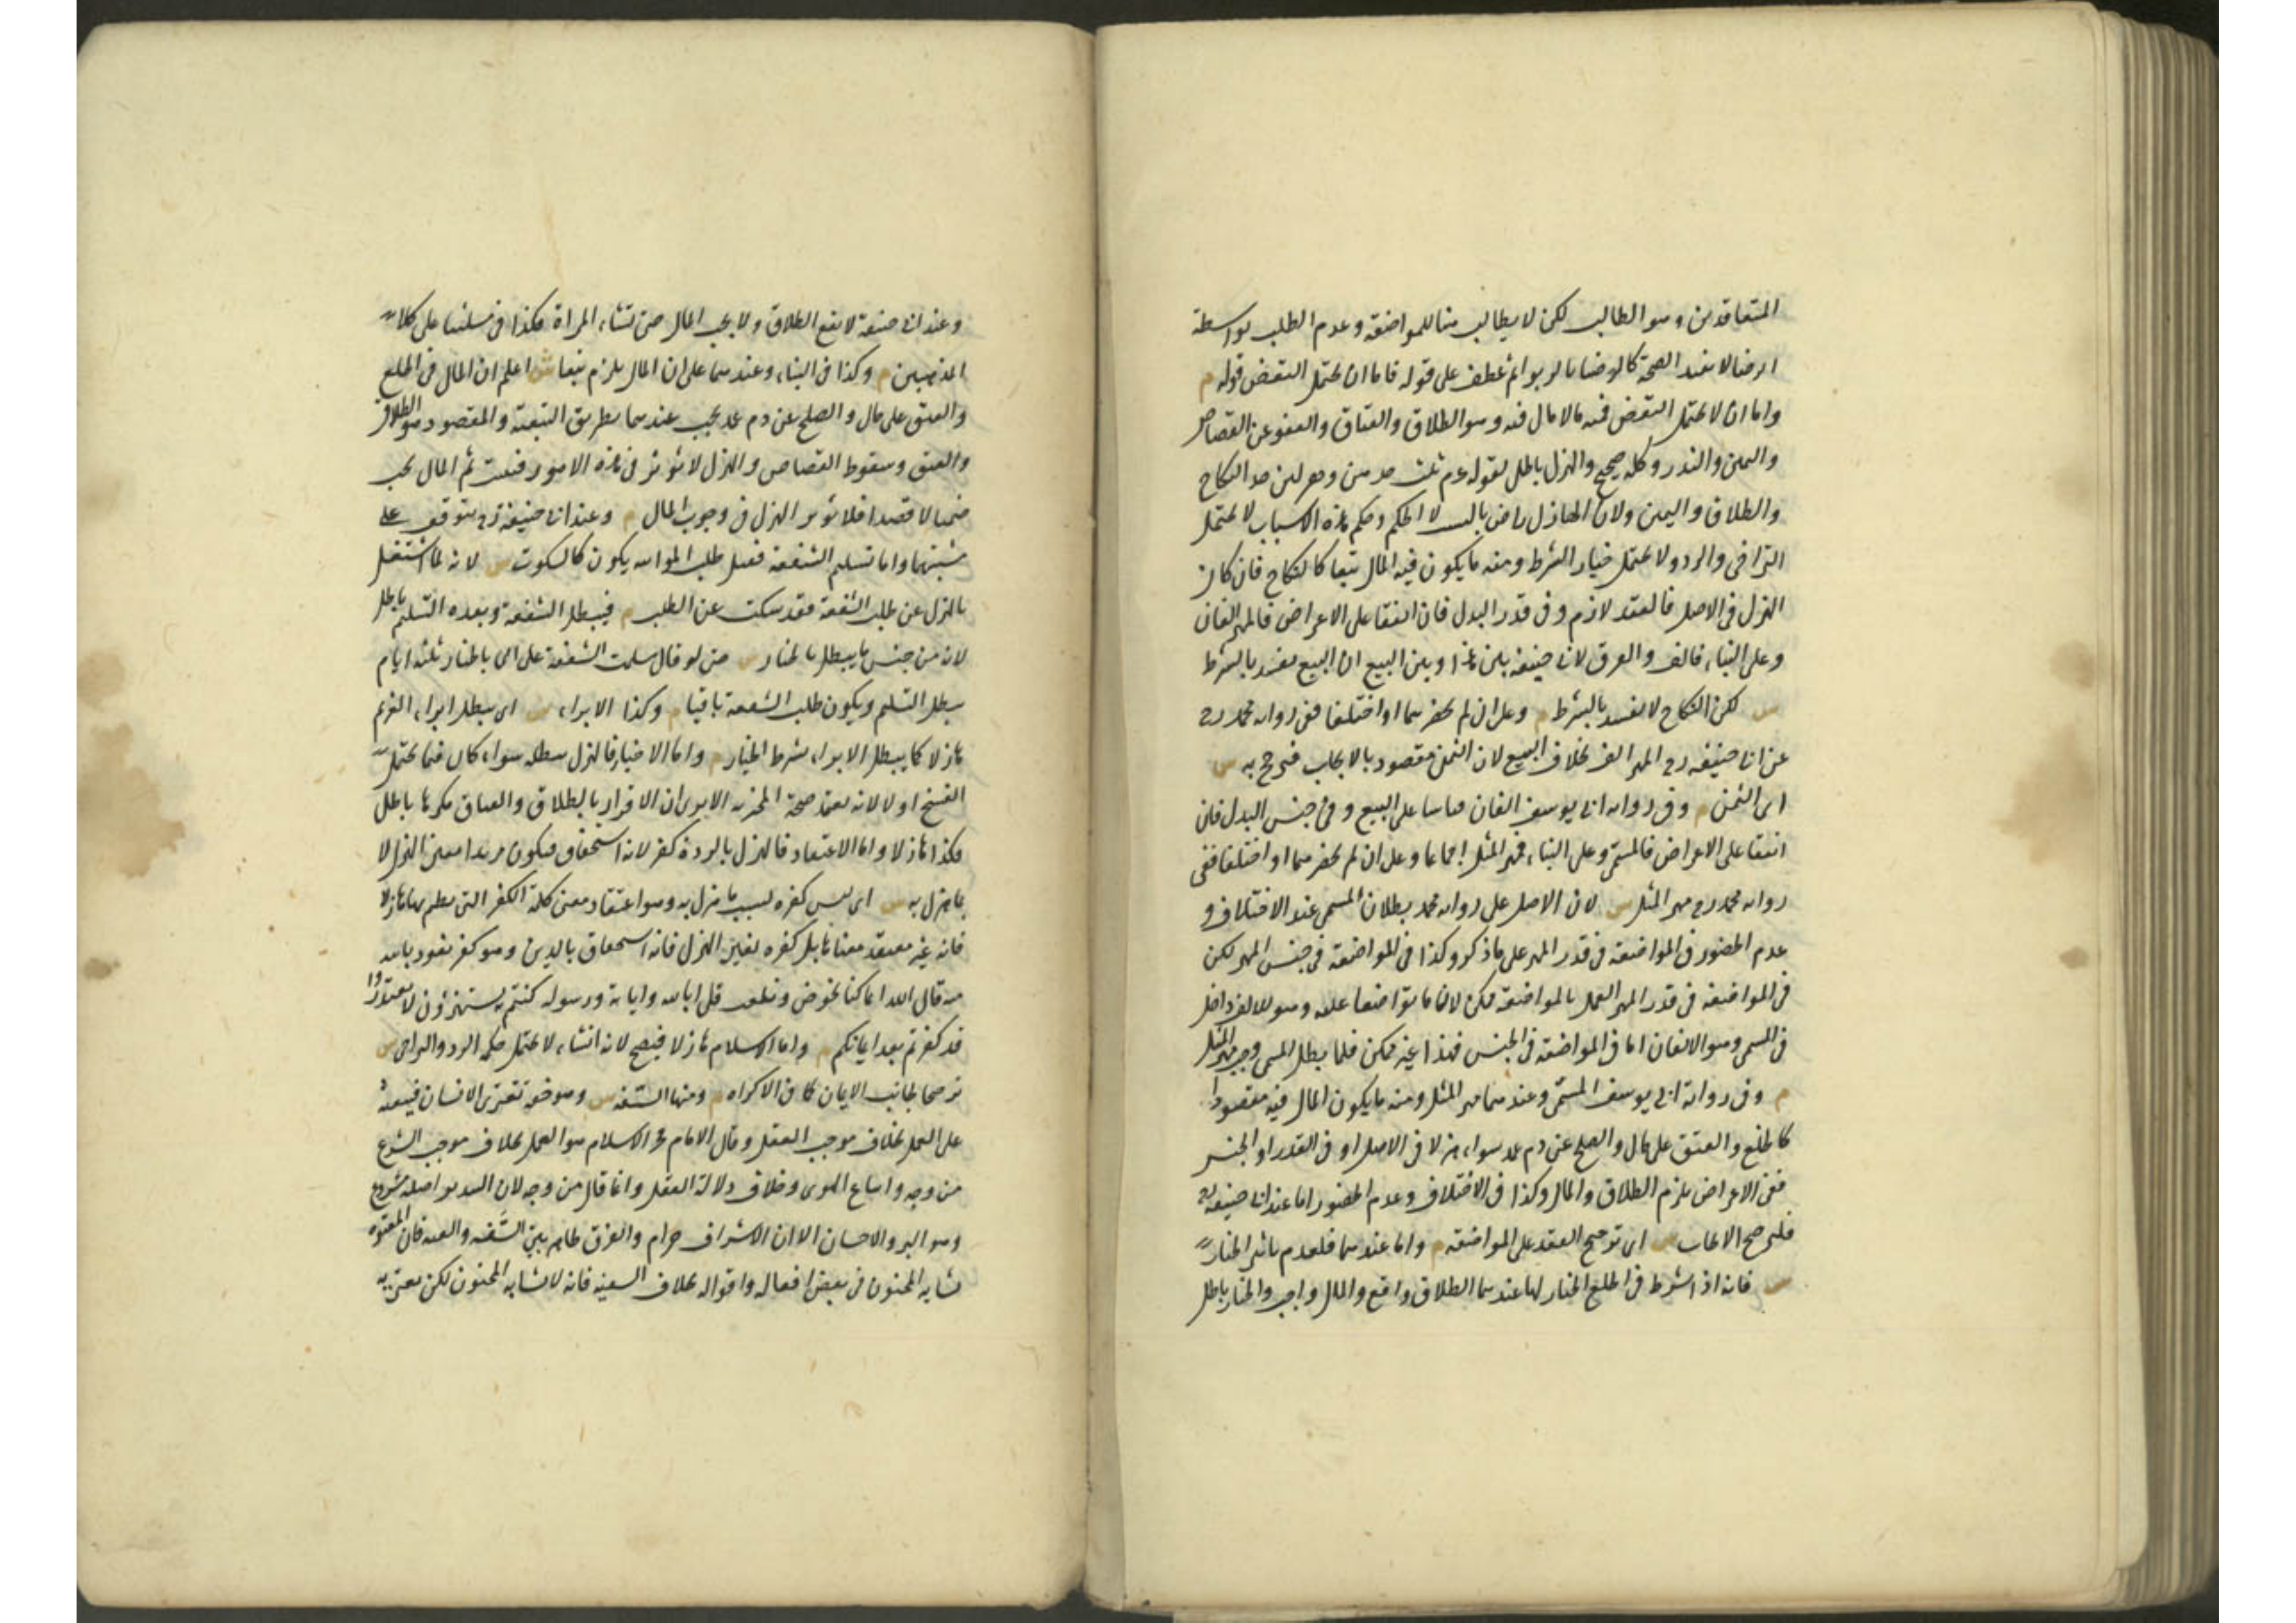 المتعاقدين وهو الطالب لكن لا يطالب هنا للمواضعة وعدم الطلب بواسطة
الرضا لا يفيد الصحة كالرضا بالربوا ثم عطف على قوله فاما ان يحتمل النقض قوله م
واما ان لا يحتمل النقض فمنه ما لا مال فيه وهو الطلاق والعتاق والعفو عن القصاص
واليمين والنذر وكله صحيح والهزل باطل لقوله عم ثلث جدهن وهزلهن جد النكاح
والطلاق واليمين ولان الهازل راض بالسبب لا الحكم وحكم هذه الاسباب لا يحتمل
التراخى والرد ولا يحتمل خيار الشرط ومنه ما يكون فيه المال تبعا كالنكاح فان كان
الهزل فى الاصل فالعقد لازم وفى قدر البدل فان اتفقا على الاعراض فالمهر الفان
وعلى البناء فالف والفرق لابى حنيفة بين هذا وبين البيع ان البيع يفسد بالشرط
ش لكن النكاح لا يفسد بالشرط م وعلى ان لم يحضرهما او اختلفا ففى رواية محمد رح
عن ابى حنيفة رح المهر الف بخلاف البيع لان الثمن مقصود بالايجاب فترجح به ش
اى الثمن م وفى رواية ابى يوسف الفان قياسا على البيع وفى جنس البدل فان
اتفقا على الاعراض فالمسمى وعلى البناء فمهر المثل اجماعا وعلى ان لم يحضرهما او اختلفا ففى
رواية محمد رح مهر المثل ش لان الاصل على رواية محمد بطلان المسمى عند الاختلاف و
عدم الحضور فى المواضعة فى قدر المهر على ما ذكر وكذا فى المواضعة فى جنس المهر لكن
فى المواضعة فى قدر المهر العمل بالمواضعة ممكن لان ما تواضعا عليه وهو الالف داخل
فى المسمى وهو الالفان اما فى المواضعة فى الجنس فهذا غير ممكن فلما بطل المسمى وجب مهر المثل
م وفى رواية ابى يوسف المسمى وعندهما مهر المثل ومنه ما يكون المال فيه مقصودا
كالخلع والعتق على مال والصلح عن دم عمد سواء هزلا فى الاصل او فى القدر او الجنس
ففى الاعراض يلزم الطلاق والمال وكذا فى الاختلاف وعدم الحضور اما عند ابى حنيفة رح
فلترجح الايجاب ش اى ترجح العقد على المواضعة م واما عندهما فلعدم تاثير الخيار
ش فانه اذا شرط فى الخلع الخيار لها عندهما الطلاق واقع والمال واجب والخيار باطل
وعند ابى حنيفة لا يقع الطلاق ولا يجب المال حتى تشاء المراة فكذا فى مسئلتنا على كلا
المذهبين م وكذا فى البناء وعندهما على ان المال يلزم تبعا ش اعلم ان المال فى الخلع
والعتق على مال والصلح عن دم عمد يجب عندهما بطريق التبعية والمقصود هو الطلاق
والعتق وسقوط القصاص والهزل لا يؤثر فى هذه الامور فتثبت ثم المال يجب
ضمنا لا قصدا فلا يؤثر الهزل فى وجوب المال م وعند ابى حنيفة رح يتوقف على
مشيتها واما تسليم الشفعة فقبل طلب المواثبة يكون كالسكوت ش لانه لما اشتغل
بالهزل عن طلب الشفعة فقد سكت عن الطلب م فيبطل الشفعة وبعده التسليم باطل
لانه من جنس ما يبطل بالخيار ش حتى لو قال سلمت الشفعة على انى بالخيار ثلثة ايام
يبطل التسليم ويكون طلب الشفعة باقيا م وكذا الابراء ش اى يبطل ابراء الغريم
هازلا كما يبطل الابراء بشرط الخيار م واما الاخبار فالهزل يبطله سواء كان فيما يحتمل
الفسخ او لا لانه يعتمد صحة المخبر به الا يرى ان الاقرار بالطلاق والعتاق مكرها باطل
فكذا هازلا واما الاعتقاد فالهزل بالردة كفر لانه استخفاف فيكون مرتدا بعين الهزل لا
بما هزل به ش اى ليس كفره بسبب ما هزل به وهو اعتقاد معنى كلمة الكفر التى تكلم بها هازلا
فانه غير معتقد معناها بل كفره بعين الهزل فانه استخفاف بالدين وهو كفر نعوذ بالله
منه قال الله انما كنا نخوض ونلعب قل ابالله واياته ورسوله كنتم تستهزؤن لا تعتذروا
قد كفرتم بعد ايمانكم م واما الاسلام هازلا فيصح لانه انشاء لا يحتمل حكمه الرد والتراخى ش
ترجيحا لجانب الايمان كما فى الاكراه م ومنها السفه ش وهو خفة تعترى الانسان فيبعثه
على العمل بخلاف موجب العقل وقال الامام فخر الاسلام هو العمل بخلاف موجب الشرع
من وجه واتباع الهوى وخلاف دلالة العقل وانما قال من وجه لان التبذير اصله مشروع
وهو البر والاحسان الا ان الاسراف حرام والفرق ظاهر بين السفه والعته فان المعتوه
يشابه المجنون فى بعض افعاله واقواله بخلاف السفيه فانه لا يشابه المجنون لكن يعتريه